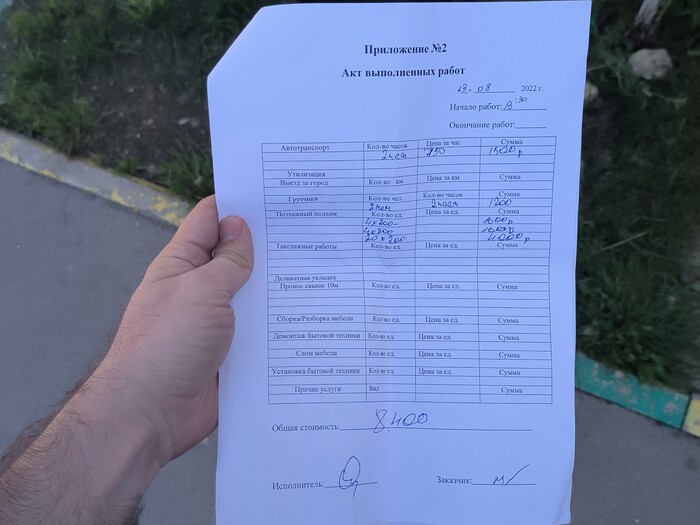 Приложение №2
Акт выполненных работ
13. 08 2022 г.
Начало работ: 13:30
Окончание работ:
Автотранспорт Кол-во часов Цена за час Сумма
2 часа 750 1500 р
Утилизация
Выезд за город Кол-во км Цена за км Сумма
Грузчики Кол-во чел. Кол-во часов Сумма
2 часа 1200
Поэтажный подъем Кол-во ед. Цена за ед. Сумма
20 × 200 4000 р
Такелажные работы Кол-во ед. Цена за ед. Сумма
Деликатная укладка
Пронос свыше 10м Кол-во ед. Цена за ед. Сумма
Сборка/Разборка мебели Кол-во ед. Цена за ед. Сумма
Демонтаж бытовой техники Кол-во ед. Цена за ед. Сумма
Слом мебели Кол-во ед. Цена за ед. Сумма
Установка бытовой техники Кол-во ед. Цена за ед. Сумма
Прочие услуги Вид Сумма
Общая стоимость: 8.400
Исполнитель: Заказчик: